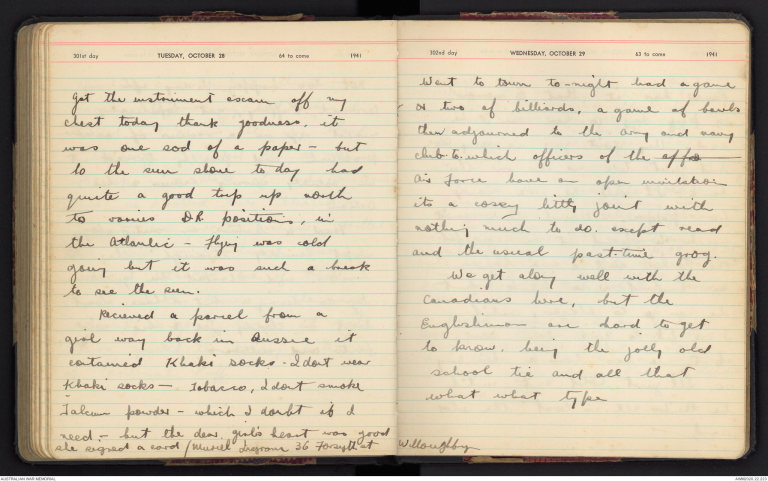 301st day TUESDAY, OCTOBER 28 64 to come 1941
Got the instrument exam off my
chest today thank goodness, it
was one sod of a paper – but
lo the sun shone today had
quite a good trip up north
to various D.R. positions, in
the Atlantic – Flying was cold
going but it was such a break
to see the sun.
Recieved a parcel from a
girl way back in Aussie it
contained Khaki socks – I dont wear
Khaki socks – Tobacco, I dont smoke
Talcum powder – which I doubt if I
need – but the dear girl's heart was good
she signed a card (Muriel Ingram 36 Forsyth st
302nd day WEDNESDAY, OCTOBER 29 63 to come 1941
Went to town to-night had a game
or two of billiards, a game of bowls
then adjourned to the army and navy
club to which officers of the
Air Force have an open invitation
its a cosey little joint with
nothing much to do. except read
and the usual past-time grog.
We get along well with the
Canadians here, but the
Englishman are hard to get
to know. being the jolly old
school tie and all that
what what type
Willoughby
AUSTRALIAN WAR MEMORIAL